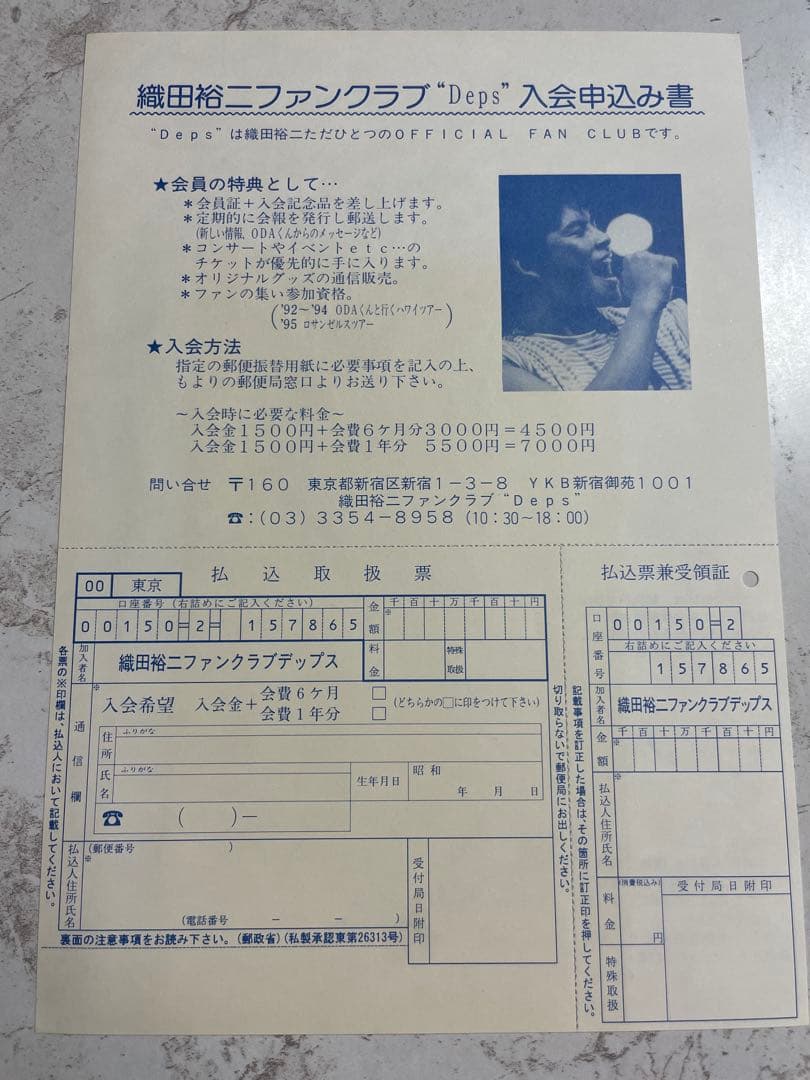 織田裕二ファンクラブ“Deps”入会申込み書
“Deps”は織田裕二ただひとつのOFFICIAL FAN CLUBです。
★会員の特典として…
＊会員証＋入会記念品を差し上げます。
＊定期的に会報を発行し郵送します。
(新しい情報, ODAくんからのメッセージなど)
＊コンサートやイベントetc…の
チケットが優先的に手に入ります。
＊オリジナルグッズの通信販売。
＊ファンの集い参加資格。
('92～'94 ODAくんと行くハワイツアー
'95 ロサンゼルスツアー)
★入会方法
指定の郵便振替用紙に必要事項を記入の上、
もよりの郵便局窓口よりお送り下さい。
～入会時に必要な料金～
入会金1500円＋会費6ケ月分3000円＝4500円
入会金1500円＋会費1年分 5500円＝7000円
問い合せ 〒160 東京都新宿区新宿1－3－8 YKB新宿御苑1001
織田裕二ファンクラブ“Deps”
☎：(03)3354－8958(10：30～18：00)
00 東京
払込取扱票
口座番号(右詰めにご記入ください)
00150=2= 157865
金額
千百十万千百十円
※
加入者名
織田裕二ファンクラブデップス
料金
特殊取扱
通信欄
※
入会希望 入会金＋
会費6ケ月 □
会費1年分 □
(どちらかの□に印をつけて下さい)
住所
ふりがな
氏名
ふりがな
生年月日
昭和
年 月 日
☎ ( )－
払込人住所氏名
(郵便番号 )
※
(電話番号 － － )
受付局日附印
裏面の注意事項をお読み下さい。(郵政省)(私製承認東第26313号)
各票の※印欄は、払込人において記載してください。
切り取らないで郵便局にお出しください。
記載事項を訂正した場合は、その箇所に訂正印を押してください。
払込票兼受領証
口座番号
00150=2
右詰めにご記入ください
157865
加入者名
織田裕二ファンクラブデップス
金額
千百十万千百十円
※
払込人住所氏名
※
料金
(消費税込み)
円
特殊取扱
受付局日附印